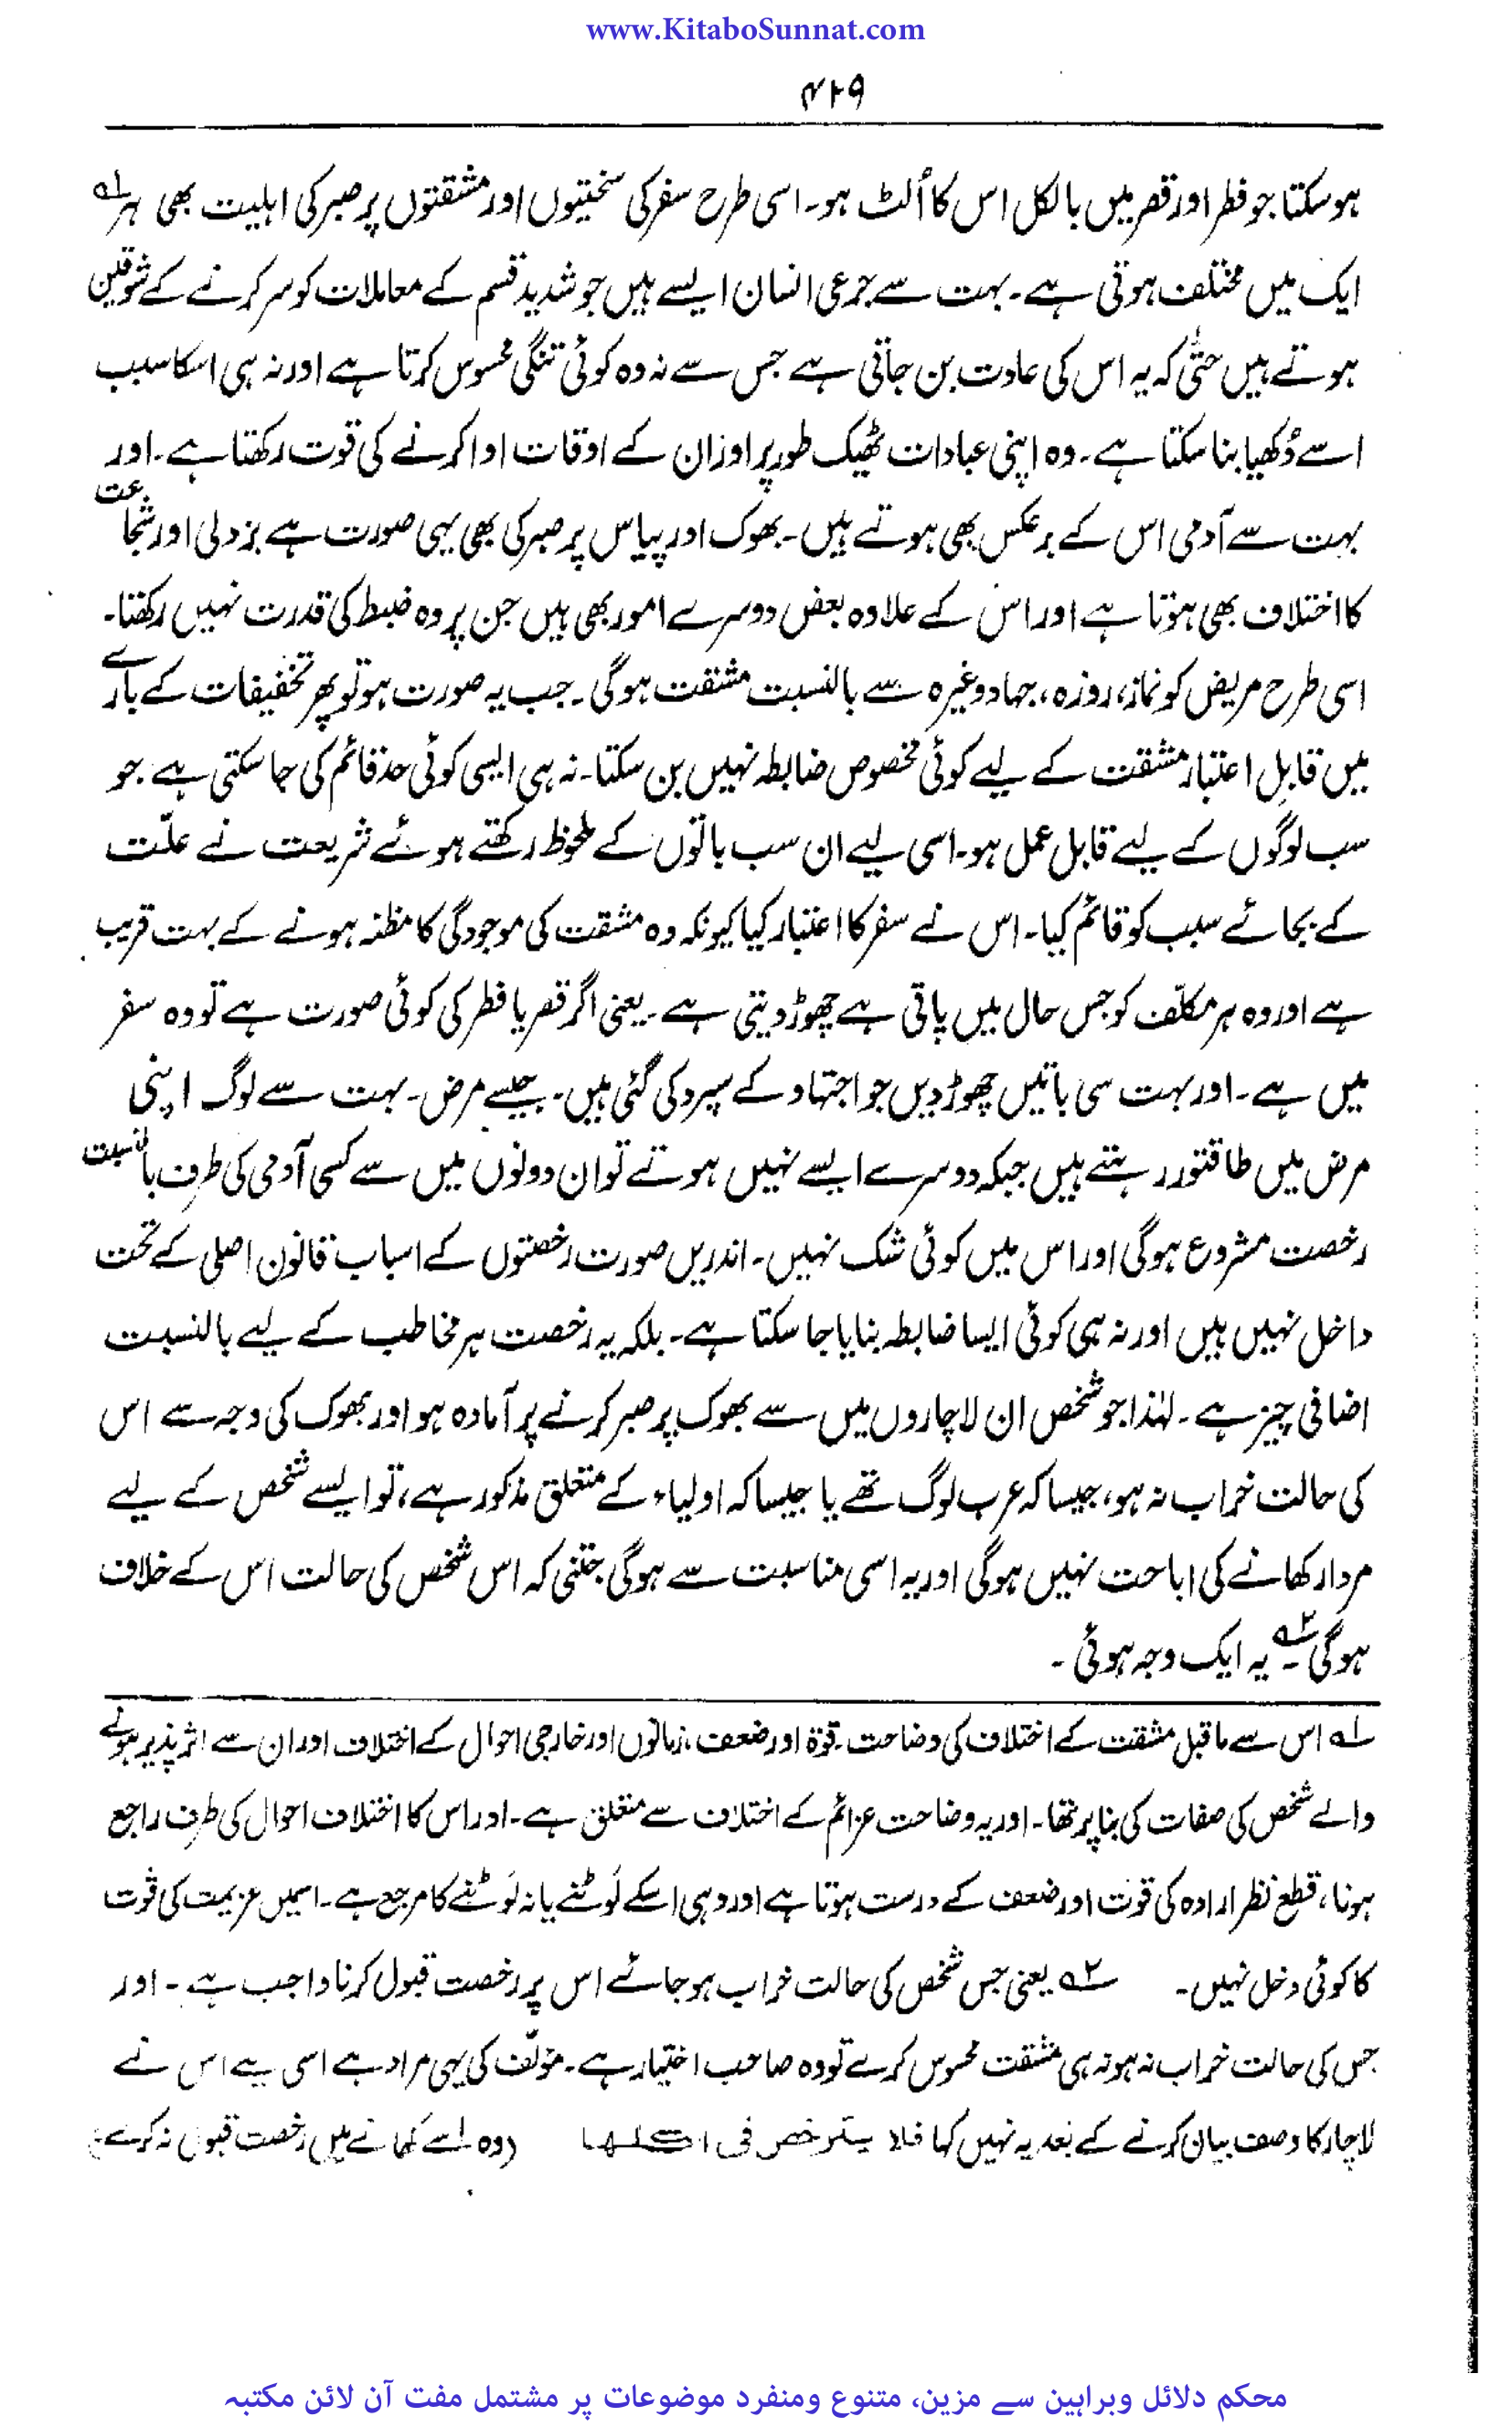 www.KitaboSunnat.com
۴۲۹
ہوسکتا جو فطر اور قصر میں بالکل اس کا اُلٹ ہو۔ اسی طرح سفر کی سختیوں اور مشقتوں پر صبر کی اہلیت بھی ہر لہ
ایک میں مختلف ہوتی ہے۔ بہت سے جرعی انسان ایسے ہیں جو شدید قسم کے معاملات کو سر کرنے کے شوقین
ہوتے ہیں حتیٰ کہ یہ اس کی عادت بن جاتی ہے جس سے نہ وہ کوئی تنگی محسوس کرتا ہے اور نہ ہی اسکا سبب
اسے دُکھیا بنا سکتا ہے۔ وہ اپنی عبادات ٹھیک طور پر اور ان کے اوقات ادا کرنے کی قوت رکھتا ہے۔ اور
بہت سے آدمی اس کے برعکس بھی ہوتے ہیں۔ بھوک اور پیاس پر صبر کی بھی یہی صورت ہے بزدلی اور شجاعت
کا اختلاف بھی ہوتا ہے اور اس کے علاوہ بعض دوسرے امور بھی ہیں جن پر وہ ضبط کی قدرت نہیں رکھتا۔
اسی طرح مریض کو نماز، روزہ، جہاد وغیرہ سے بالنسبت مشقت ہوگی۔ جب یہ صورت ہو تو پھر تخفیفات کے بارے
میں قابل اعتبار مشقت کے لیے کوئی مخصوص ضابطہ نہیں بن سکتا۔ نہ ہی ایسی کوئی حد قائم کی جا سکتی ہے جو
سب لوگوں کے لیے قابل عمل ہو۔ اسی لیے ان سب باتوں کے ملحوظ رکھتے ہوئے شریعت نے علّت
کے بجائے سبب کو قائم کیا۔ اس نے سفر کا اعتبار کیا کیونکہ وہ مشقت کی موجودگی کا مظنہ ہونے کے بہت قریب
ہے اور وہ ہر مکلّف کو جس حال میں پاتی ہے چھوڑ دیتی ہے۔ یعنی اگر قصر یا فطر کی کوئی صورت ہے تو وہ سفر
میں ہے۔ اور بہت سی باتیں چھوڑ دیں جو اجتہاد کے سپرد کی گئی ہیں۔ جیسے مرض۔ بہت سے لوگ اپنی
مرض میں طاقتور رہتے ہیں جبکہ دوسرے ایسے نہیں ہوتے تو ان دونوں میں سے کسی آدمی کی طرف بالنسبت
رخصت مشروع ہوگی اور اس میں کوئی شک نہیں۔ اندریں صورت رخصتوں کے اسباب قانون اصلی کے تحت
داخل نہیں ہیں اور نہ ہی کوئی ایسا ضابطہ بنایا جا سکتا ہے۔ بلکہ یہ رخصت ہر مخاطب کے لیے بالنسبت
اضافی چیز ہے۔ لہٰذا جو شخص ان لاچاروں میں سے بھوک پر صبر کرنے پر آمادہ ہو اور بھوک کی وجہ سے اس
کی حالت خراب نہ ہو، جیسا کہ عرب لوگ تھے یا جیسا کہ اولیاء کے متعلق مذکور ہے، تو ایسے شخص کے لیے
مردار کھانے کی اباحت نہیں ہوگی اور یہ اسی مناسبت سے ہوگی جتنی کہ اس شخص کی حالت اس کے خلاف
ہوگی۔ ۲ہ یہ ایک وجہ ہوئی۔
لہ اس سے ماقبل مشقت کے اختلاف کی وضاحت۔ قوۃ اور ضعف، زمانوں اور خارجی احوال کے اختلاف اور ان سے اثر پذیر ہونے
والے شخص کی صفات کی بنا پر تھا۔ اور یہ وضاحت عزائم کے اختلاف سے متعلق ہے۔ اور اس کا اختلاف احوال کی طرف راجع
ہونا، قطع نظر ارادہ کی قوت اور ضعف کے درست ہوتا ہے اور وہی اسکے لَوٹنے یا نہ لَوٹنے کا مرجع ہے۔ اسمیں عزیمت کی قوت
کا کوئی دخل نہیں۔ ۲ہ یعنی جس شخص کی حالت خراب ہو جائے اس پر رخصت قبول کرنا واجب ہے۔ اور
جس کی حالت خراب نہ ہو نہ ہی مشقت محسوس کرے تو وہ صاحب اختیار ہے۔ مؤلّف کی یہی مراد ہے اسی لیے اس نے
لاچار کا وصف بیان کرنے کے بعد یہ نہیں کہا فلا یترخص فی اکلہا (وہ اسے کھانے میں رخصت قبول نہ کرے)
محکم دلائل وبراہین سے مزین، متنوع ومنفرد موضوعات پر مشتمل مفت آن لائن مکتبہ